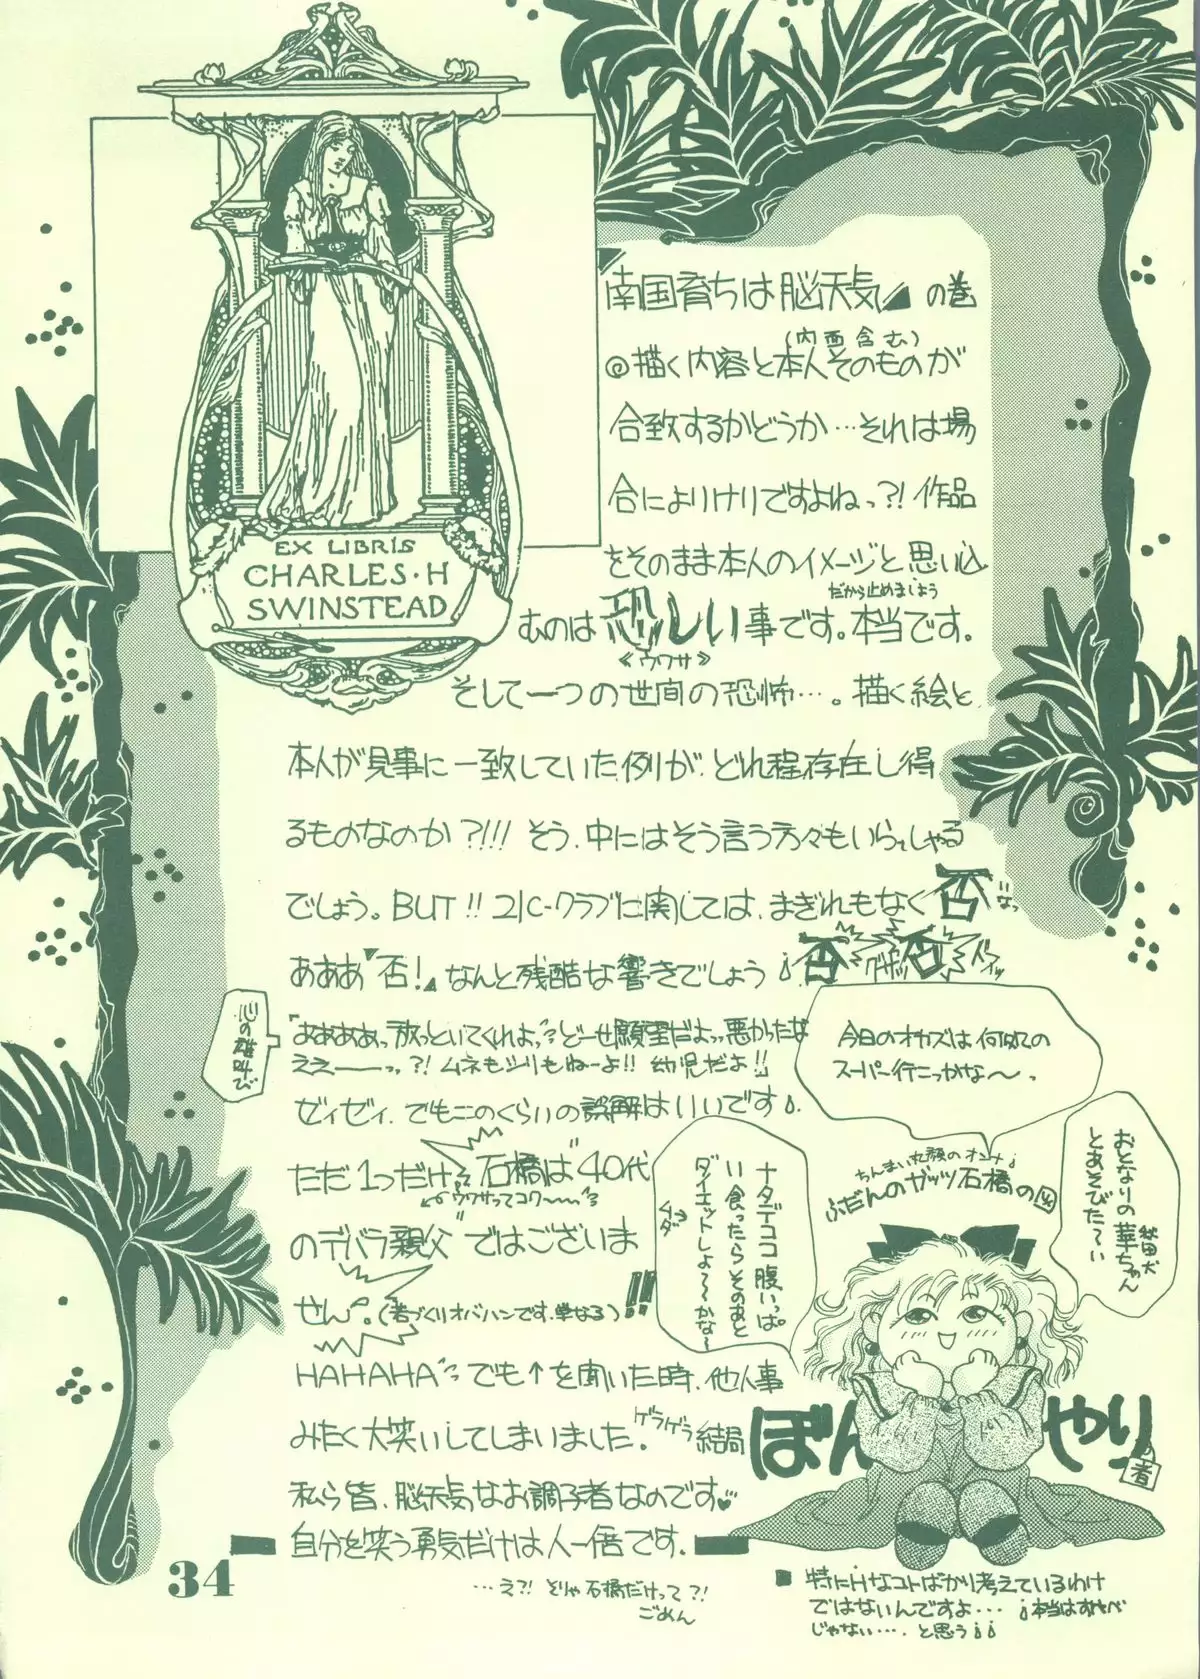 EX LIBRIS
CHARLES・H
SWINSTEAD
南国育ちは脳天気 の巻
(内面含む)
◎描く内容と本人そのものが
合致するかどうか…それは場
合によりけりですよねっ?! 作品
をそのまま本人のイメージと思い込
だから止めましょう
むのは恐しい事です。本当です。
《ウワサ》
そして一つの世間の恐怖…。描く絵と
本人が見事に一致していた例が、どれ程存在し得
るものなのか?!!! そう、中にはそう言う方々もいらっしゃる
でしょう。BUT!! 21C-クラブに関しては、まぎれもなく否
なっ
あああ『否!』なんと残酷な響きでしょう
否 グサッ 否 ドイッ
心の雄叫び
『ああああっ放っといてくれよっどーせ願望だよっ悪かったな
ええーーっ?! ムネもシリもねーよ!! 幼児だよ!!
ゼイゼイ、でもこのくらいの誤解はいいです
ただ1つだけ 石橋は"40代
ウワサってコワ〜〜
のデバラ親父"ではございま
せん。(若づくりオバハンです、単なる)!!
HAHAHA でも↑を聞いた時、他人事
みたく大笑いしてしまいました。ゲラゲラ 結局
私ら皆、脳天気なお調子者なのです♥
自分を笑う勇気だけは人一倍です。
…え?! とりゃ石橋だけって?!
ごめん
今日のオカズは何処の
スーパー行こっかな〜。
おとなりの華ちゃん
秋田犬
とあそびた〜い
ナタデココ腹いっぱ
い食ったらそのあと
ダイエットしよ〜かな〜
ムダ
ちんまい丸顔のオンナ
ふだんのガッツ石橋の図
ぼんやり
の者
■ 特にHなコトばかり考えているわけ
ではないんですよ… 本当はすけべ
じゃない…. と思う
34